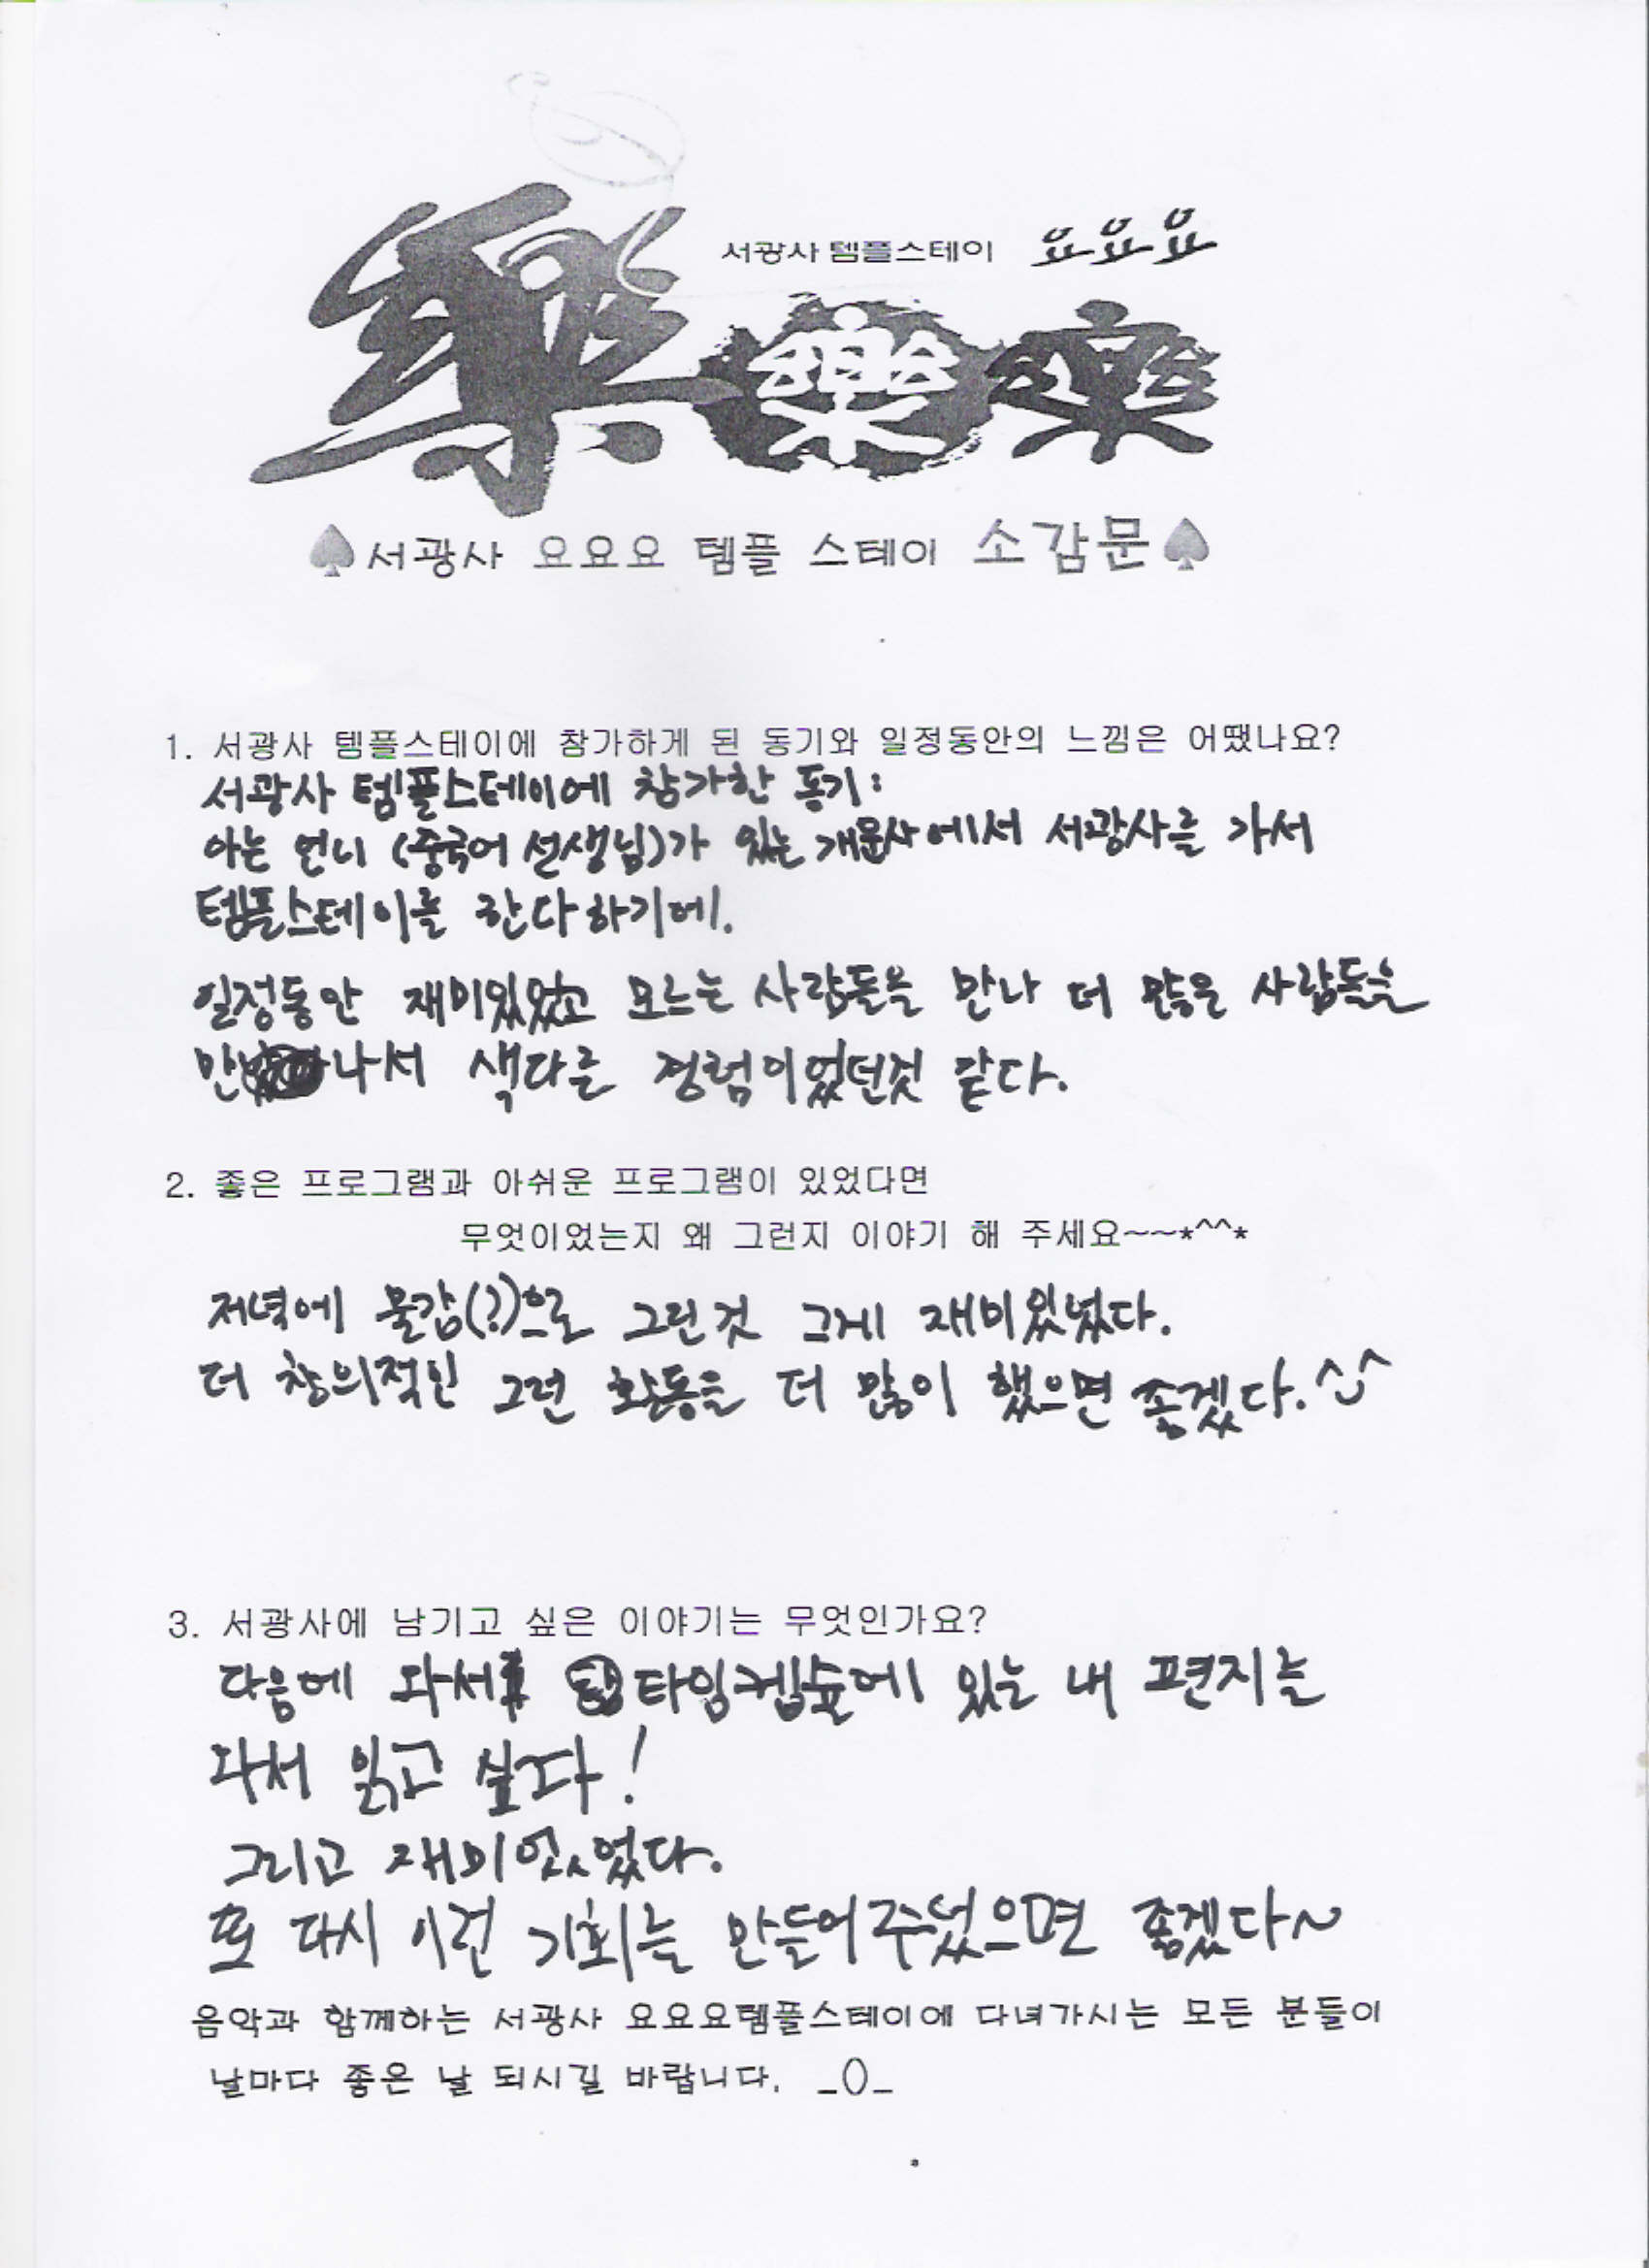 서광사 템플스테이 요요요
樂樂樂
♠서광사 요요요 템플 스테이 소감문♠
1. 서광사 템플스테이에 참가하게 된 동기와 일정동안의 느낌은 어땠나요?
서광사 템플스테이에 참가한 동기:
아는 언니 (중국어 선생님)가 있는 개문사에서 서광사를 가서
템플스테이를 한다하기에.
일정동안 재미있었고 모르는 사람들을 만나 더 많은 사람들을
만나서 색다른 경험이었던것 같다.
2. 좋은 프로그램과 아쉬운 프로그램이 있었다면
무엇이었는지 왜 그런지 이야기 해 주세요~~*^^*
저녁에 물감(?)으로 그린것 그게 재미있었다.
더 창의적인 그런 활동을 더 많이 했으면 좋겠다.^^
3. 서광사에 남기고 싶은 이야기는 무엇인가요?
다음에 와서 타임켑슐에 있는 내 편지를
와서 읽고 싶다!
그리고 재미있었다.
또 다시 이런 기회를 만들어주셨으면 좋겠다~
음악과 함께하는 서광사 요요요템플스테이에 다녀가시는 모든 분들이
날마다 좋은 날 되시길 바랍니다. _()_